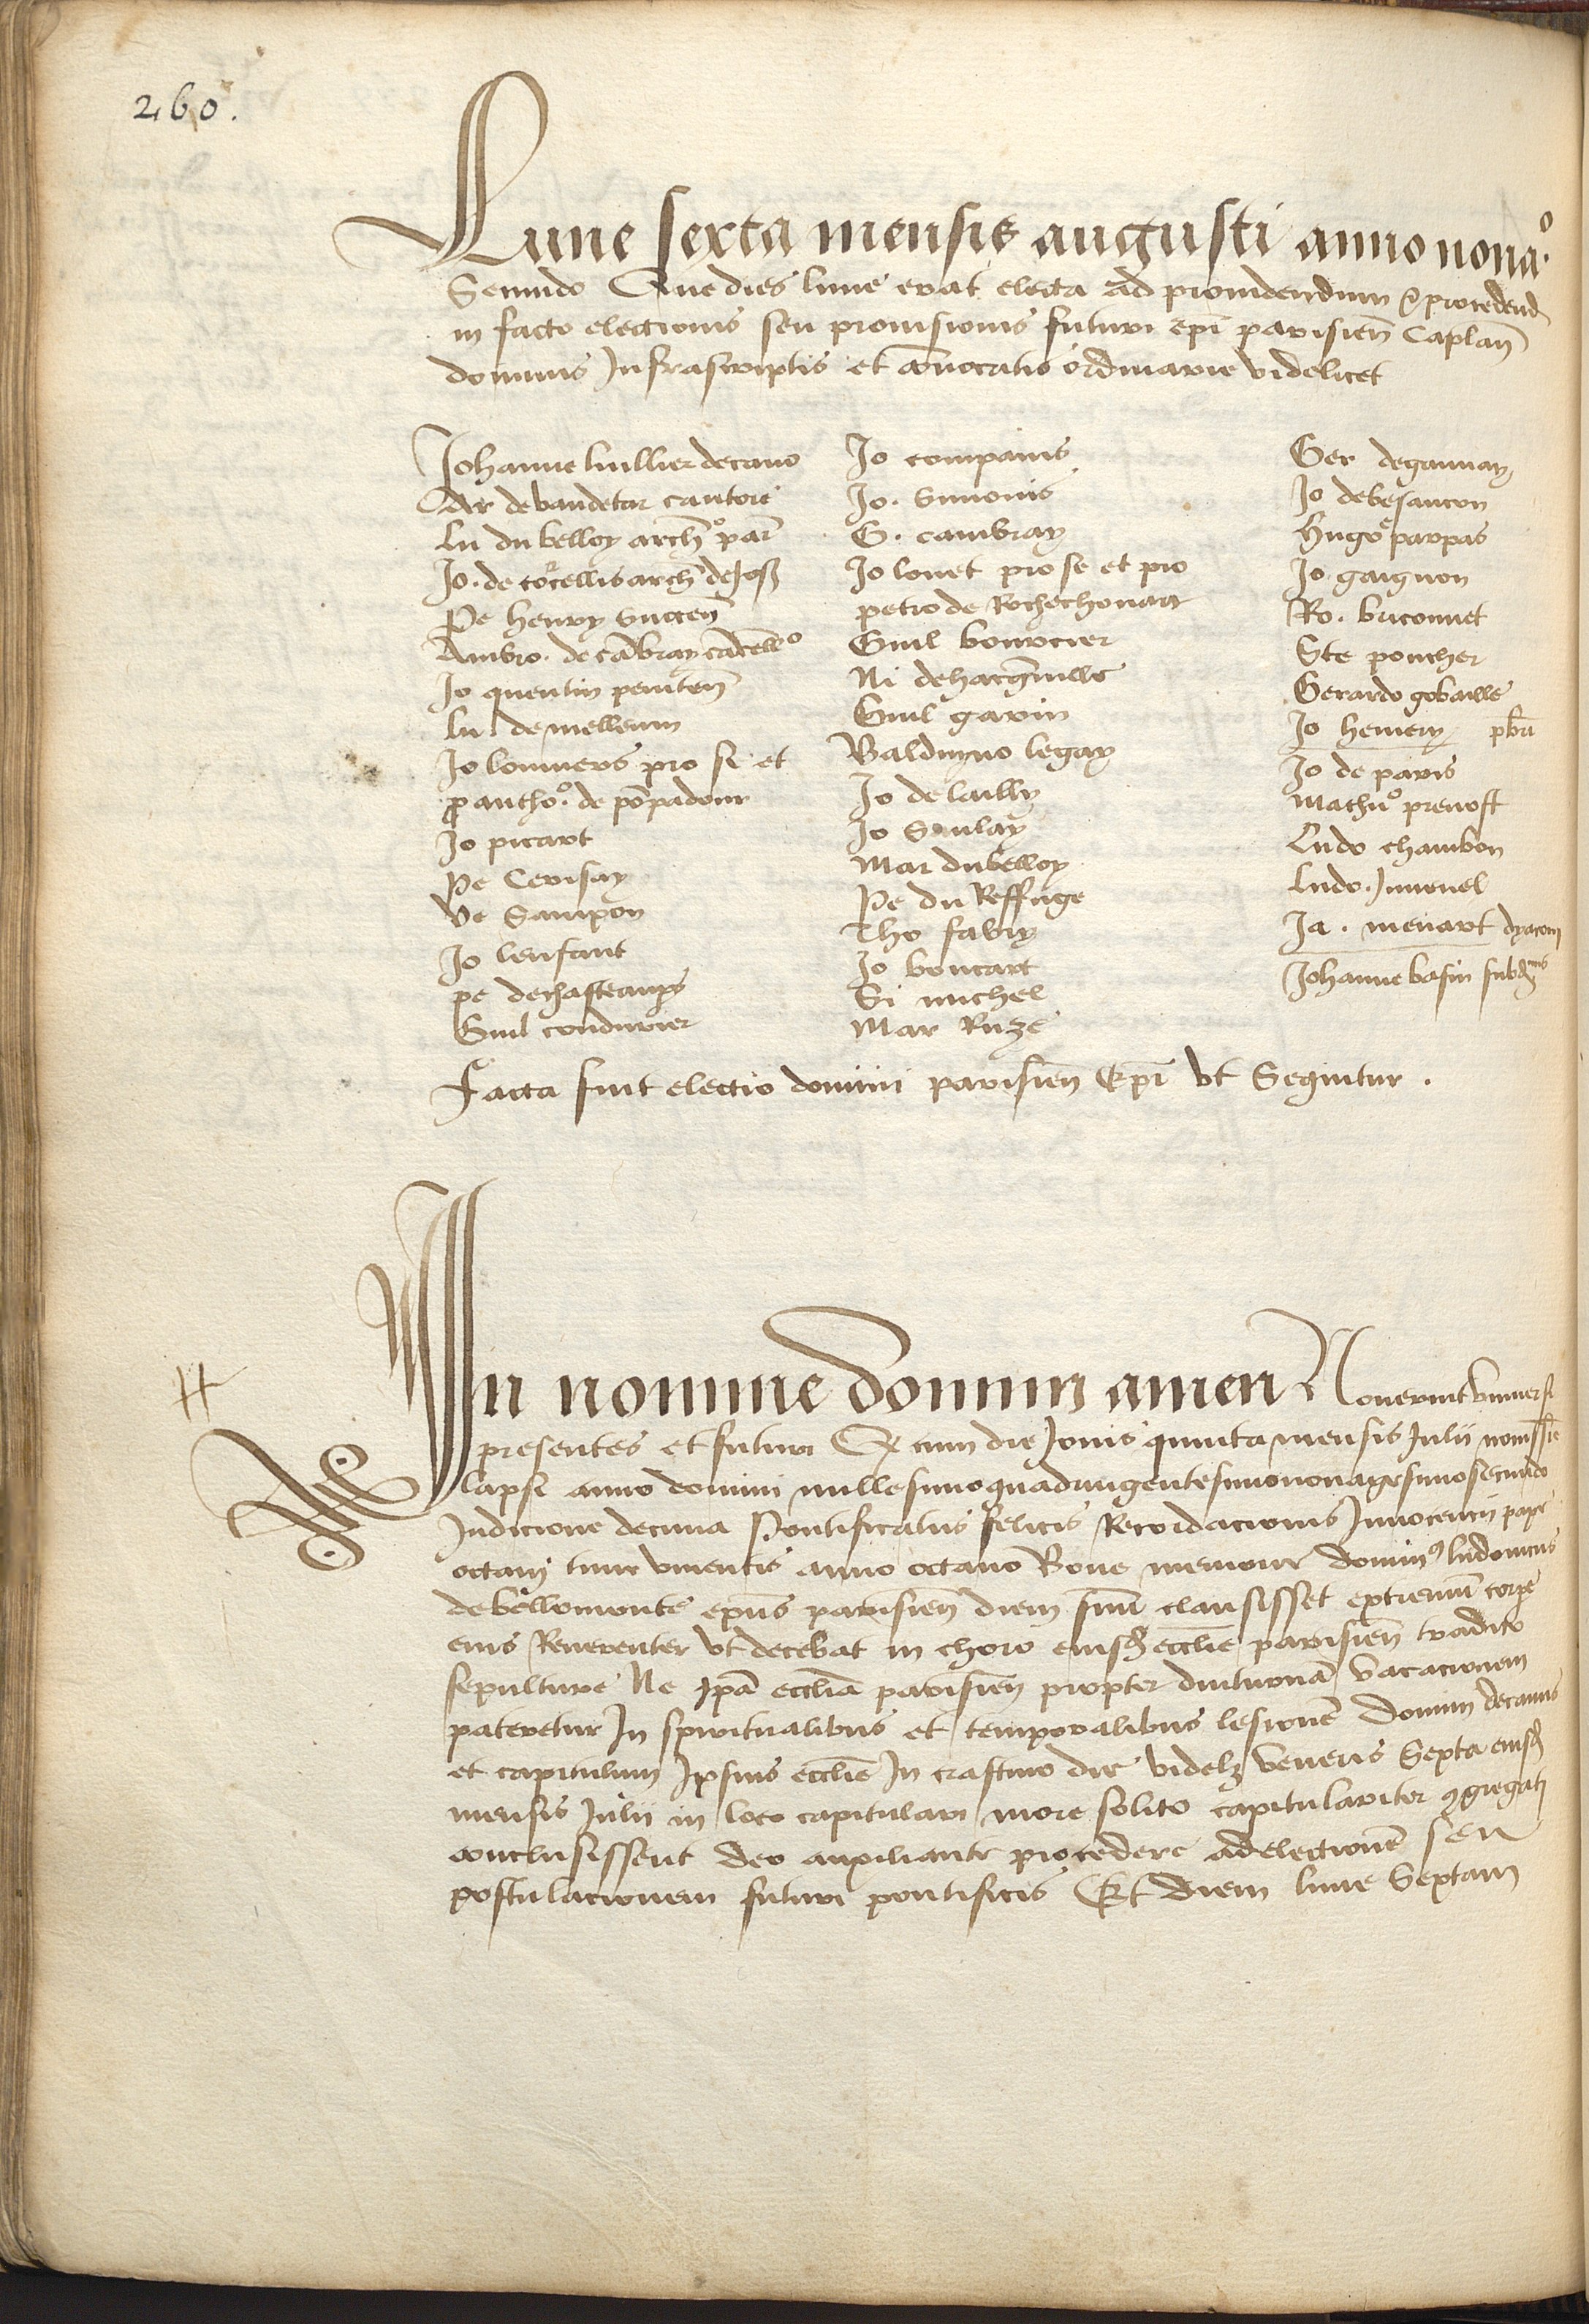 260.
Lune sexta mensis augusti anno nona.º
Secundo Que dies lune erat electa ad prouidendum & procedend
in facto electionis seu prouisionis futuri epi parisien Caplan
dominis Infrascriptis et conuocatis ordinarie videlicet
Johanne luillier decano
Ar de baudetar cantore
Lu du belloy archº par
Jo. de corcellis arch de Josz
Pe henry succen
Ambro. de cabray cacellº
Jo quentin peniten
Lu de melleun
Jo lommers pro se et
p anthoº. de popadour
Jo picart
Pe Cerisay
Ve Sampon
Jo lenfant
pe dechasteaupers
Guil condurier
Jo compains
Jo. Simonis
G. cambray
Jo louet pro se et pro
petro de Rochechouart
Guil bourcier
Ni de hacqueuille
Guil gavin
Balduyno legay
Jo de lailly
Jo Saulay
Mar dubelloy
Pe du Reffuge
Tho fabry
Jo boucart
Si michel
Mar Ruze
Ger degannay
Jo debesancon
Hugoe parpas
Jo gaignon
Ro. briconnet
Ste poncher
Gerardo gobaille
Jo hemery pbri
Jo de paris
Mathuº preuost
Ludo chambon
Ludo. Juuenel
Ja. menart dyaconi
Johanne basin subd
Facta fuit electio domini parisien Epi vt Sequitur.
In nomine domini amen Nouerint vniuersi
presentes et futuri Q cum die Jouis quinta mensis Julii nouisse
lapsi anno domini millesimo quadringentesimo nonagesimo secundo
Indicione decima Pontificatus felicis Recordacionis Innocencii pape
octaui tunc viuentis anno octauo Bone memorie dominus ludouicus
debellomonte epus parisien diem suu clausisset extremu corpe
eius Reuerenter vt decebat in choro eiusd ecclie parisien tradito
sepulture Ne ipa ecclia parisien propter diuturna vacacionem
pateretur In spiritualibus et temporalibus lesione Domini decanus
et capitulum Ipsius ecclie In crastino die videlz veneris Sexta eiusd
mensis Julii in loco capitulari more solito capitulariter 9gregati
conclusissent deo auxiliante procedere ad electione seu
postulacionem futuri pontificis Et diem lune Sextam